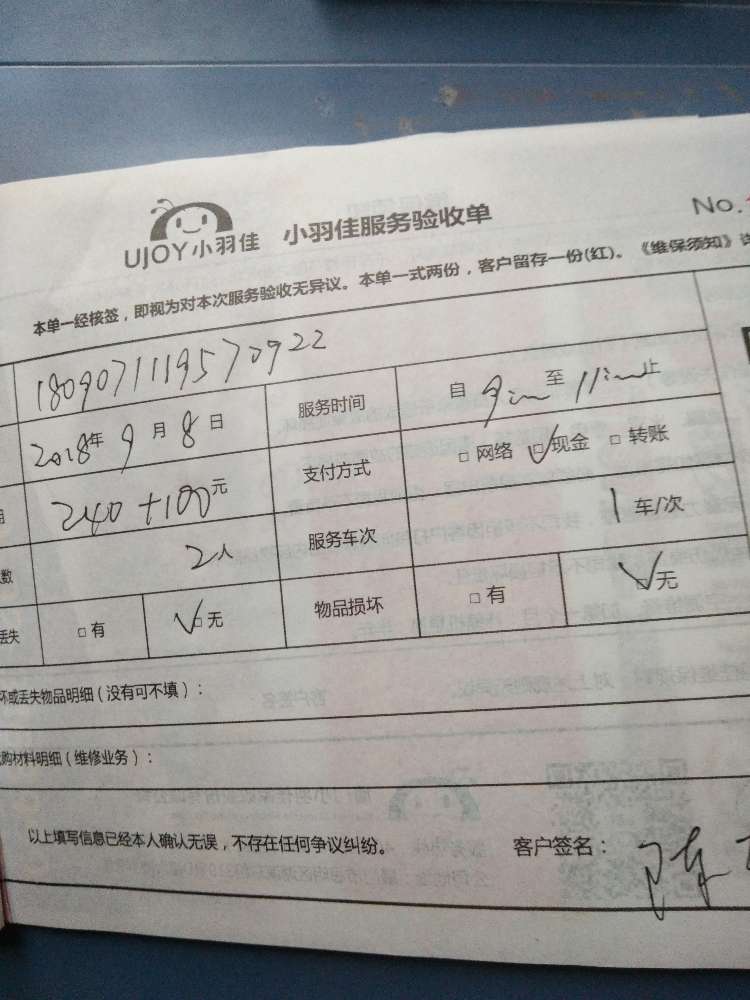 UJOY小羽佳 小羽佳服务验收单 No.
本单一经核签，即视为对本次服务验收无异议。本单一式两份，客户留存一份(红)。《维保须知》
1809071119570922
2018年9月8日 服务时间 自9:00至11:00止
240+100元 支付方式 □网络 ☑现金 □转账
数 2人 服务车次 1车/次
丢失 □有 ☑无 物品损坏 □有 ☑无
坏或丢失物品明细（没有可不填）：
购材料明细（维修业务）：
以上填写信息已经本人确认无误，不存在任何争议纠纷。 客户签名：陈